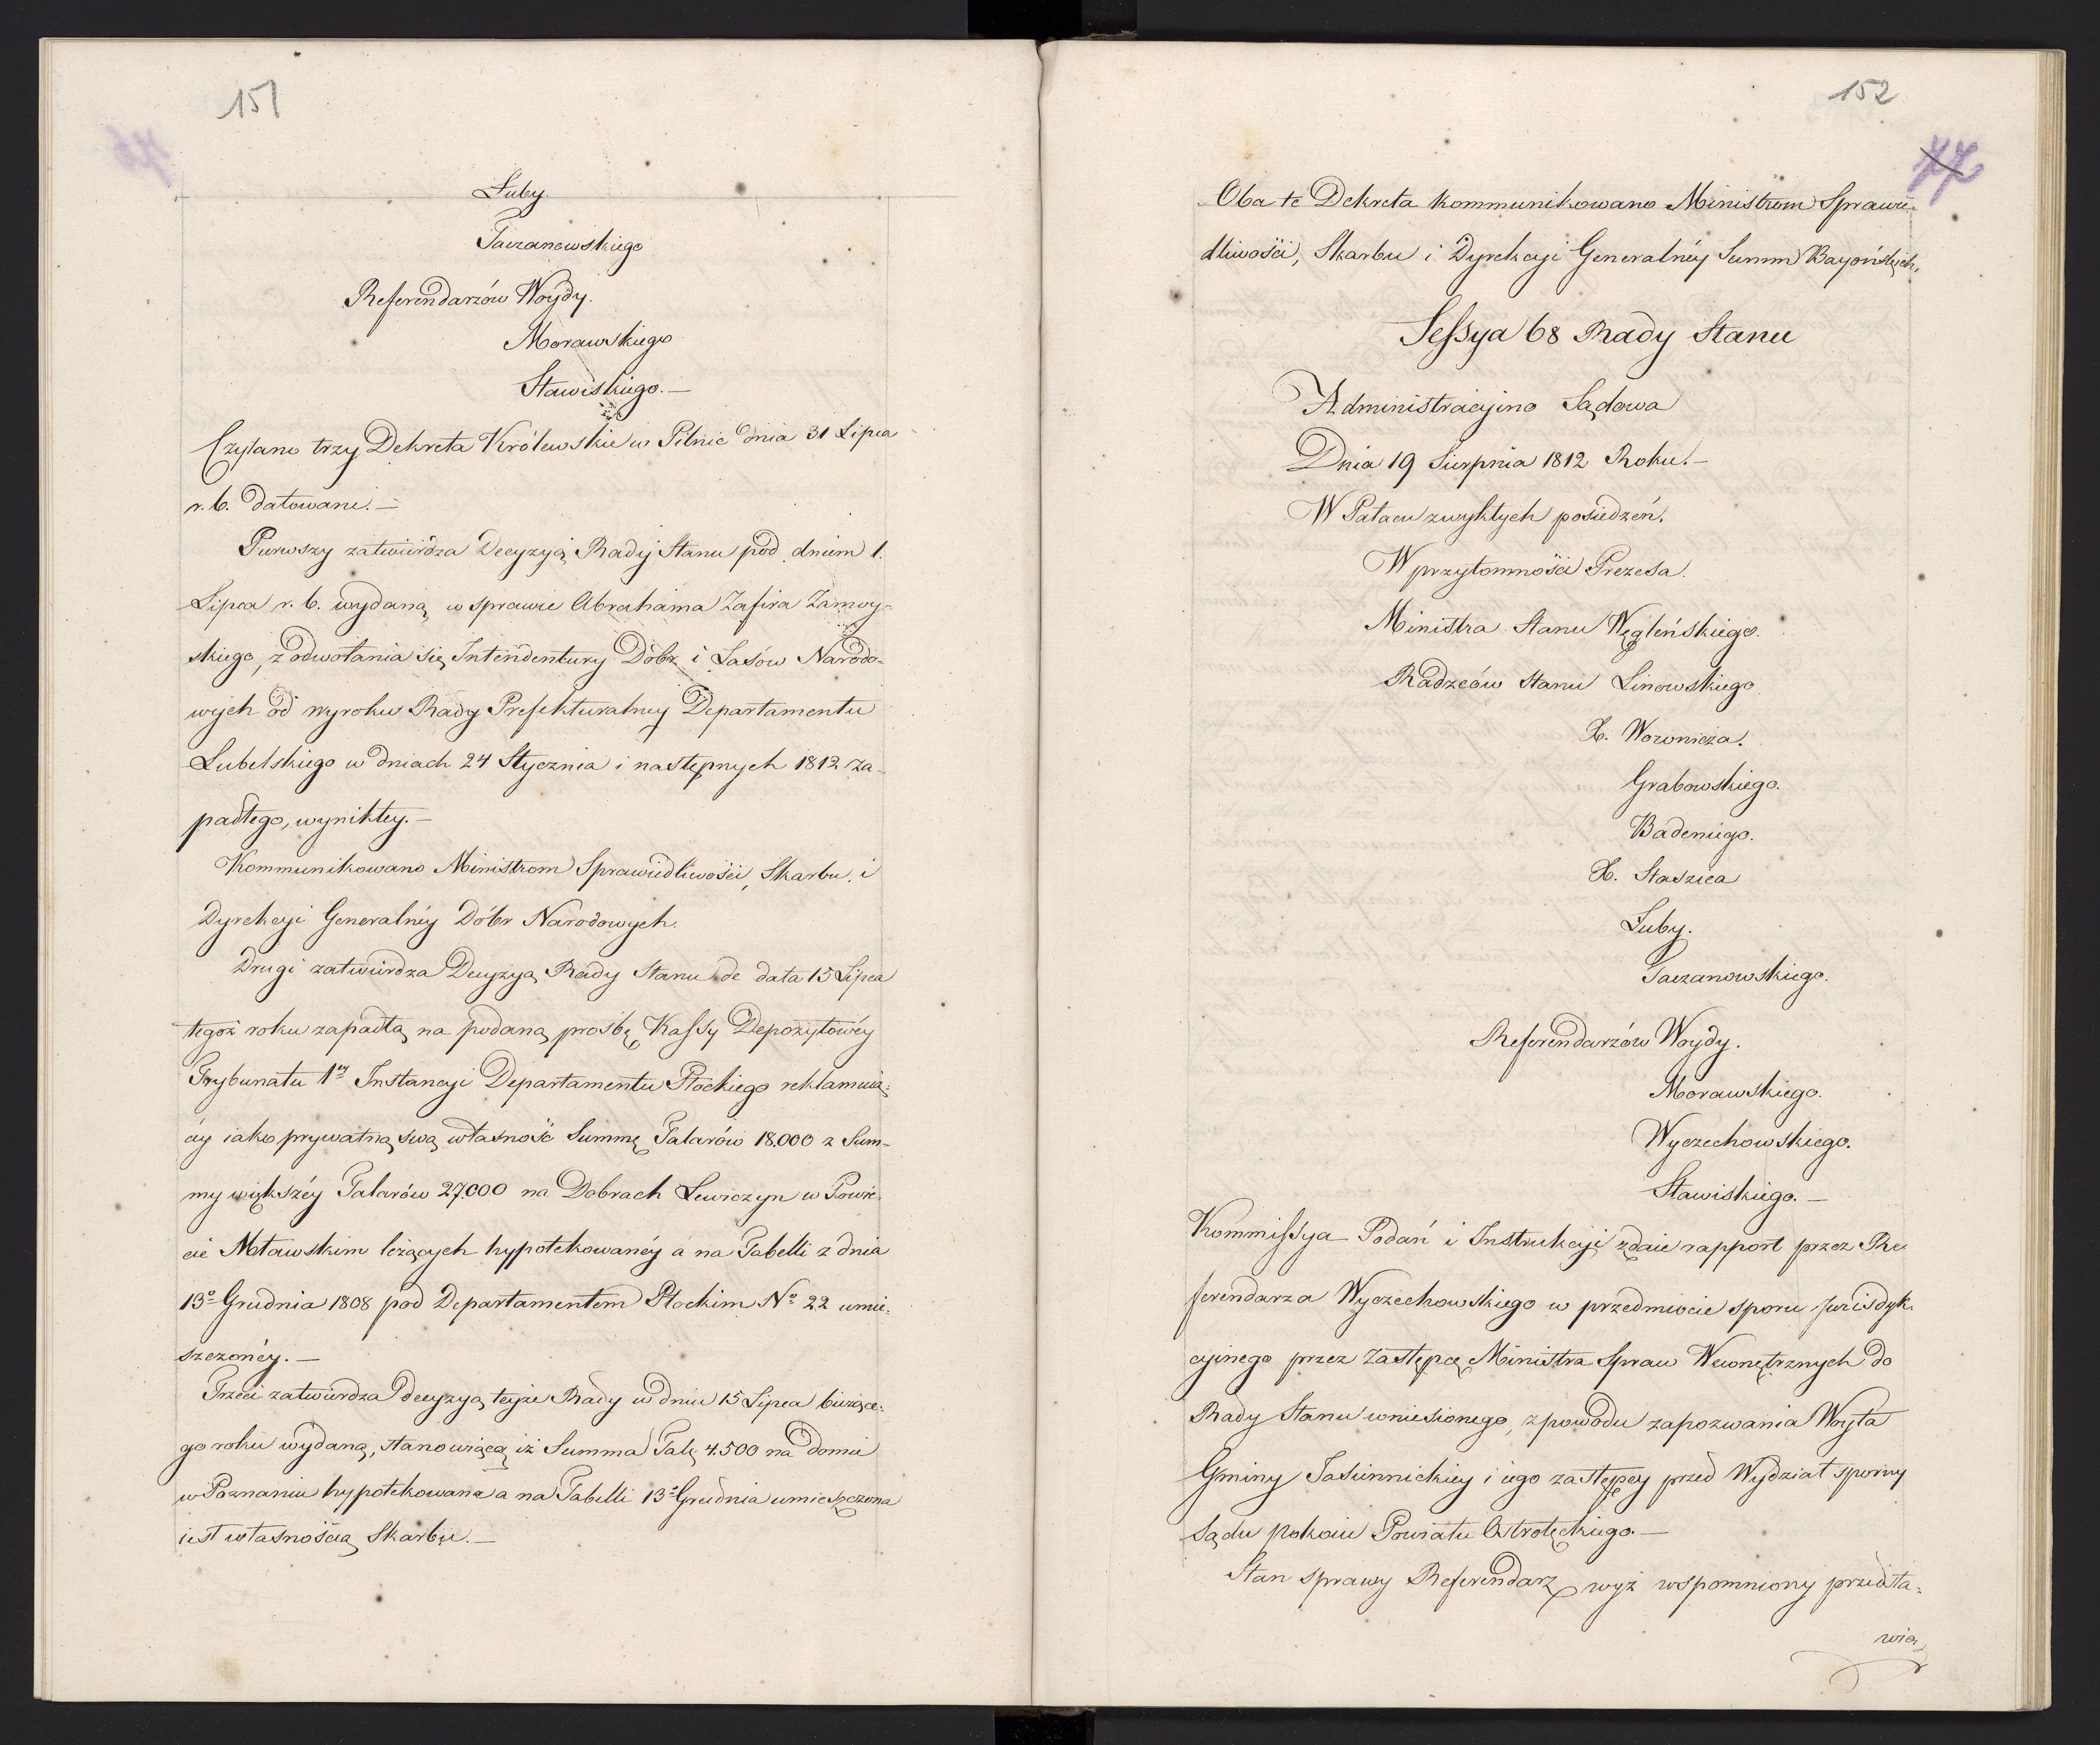 151
Łuby.
Taczanowskiego
Referendarzów Woydy.
Morawskiego
Stawiskiego.—
Czytano trzy Dekreta Królewskie w Pilnic dnia 31 Lipca
r. b. datowane.—
Pierwszy zatwierdza Decyzyią Rady Stanu pod dniem 1.
Lipca r. b. wydaną w sprawie Abrahama Zafira Zamoy-
skiego, z odwołania się Intendentury Dóbr i Lasów Narodo-
wych od wyroku Rady Prefekturalney Departamentu
Lubelskiego w dniach 24 Stycznia i następnych 1812 za-
padłego, wynikłey.—
Kommunikowano Ministrom Sprawiedliwości, Skarbu, i
Dyrekcyi Generalnéy Dóbr Narodowych.
Drugi zatwierdza Decyzyą Rady Stanu de data 15 Lipca
tegoż roku zapadłą na podaną prośbę Kassy Depozytowéy
Trybunału 1ey Instancyi Departamentu Płockiego reklamuią-
cey iako prywatną swą własność Summę Talarów 18.000 z Sum-
my większéy Talarów 27.000 na Dobrach Lewiczyn w Powie-
cie Mławskim leżących hypotekowanéy a na Tabelli z dnia
13º Grudnia 1808 pod Departamentem Płockim Nº 22 umie-
szczonéy.—
Trzeci zatwierdza decyzyą teyże Rady w dniu 15 Lipca bieżące-
go roku wydaną, stanowiącą iż Summa Tal. 4.500 na domie
w Poznaniu hypotekowana a na Tabelli 13º Grudnia umieszczona
iest własnością Skarbu.—
152
77
Oba te Dekreta kommunikowano Ministrom Sprawie-
dliwości, Skarbu i Dyrekcyi Generalnéy Summ Bayońskich.
Sessya 68 Rady Stanu
Administracyino Sądowa
Dnia 19 Sierpnia 1812 Roku.—
W Pałacu zwykłych posiedzeń.
W przytomności Prezesa.
Ministra Stanu Węgleńskiego.
Radzców Stanu Linowskiego
X. Woronicza.
Grabowskiego.
Badeniego.
X. Staszica
Łuby.
Taczanowskiego.
Referendarzów Woydy.
Morawskiego.
Wyczechowskiego.
Stawiskiego.—
Kommissya Podań i Instrukcyi zdaie rapport przez Re-
ferendarza Wyczechowskiego w przedmiocie sporu jurisdyk-
cyinego przez Zastępcę Ministra Spraw Wewnętrznych do
Rady Stanu wniesionego, z powodu zapozwania Woyta
Gminy Jasiennickiey i iego zastępcy przed Wydział sporny
Sądu pokoiu Powiatu Ostrołęckiego.—
Stan sprawy Referendarz wyż wspomniony przedsta-
wia